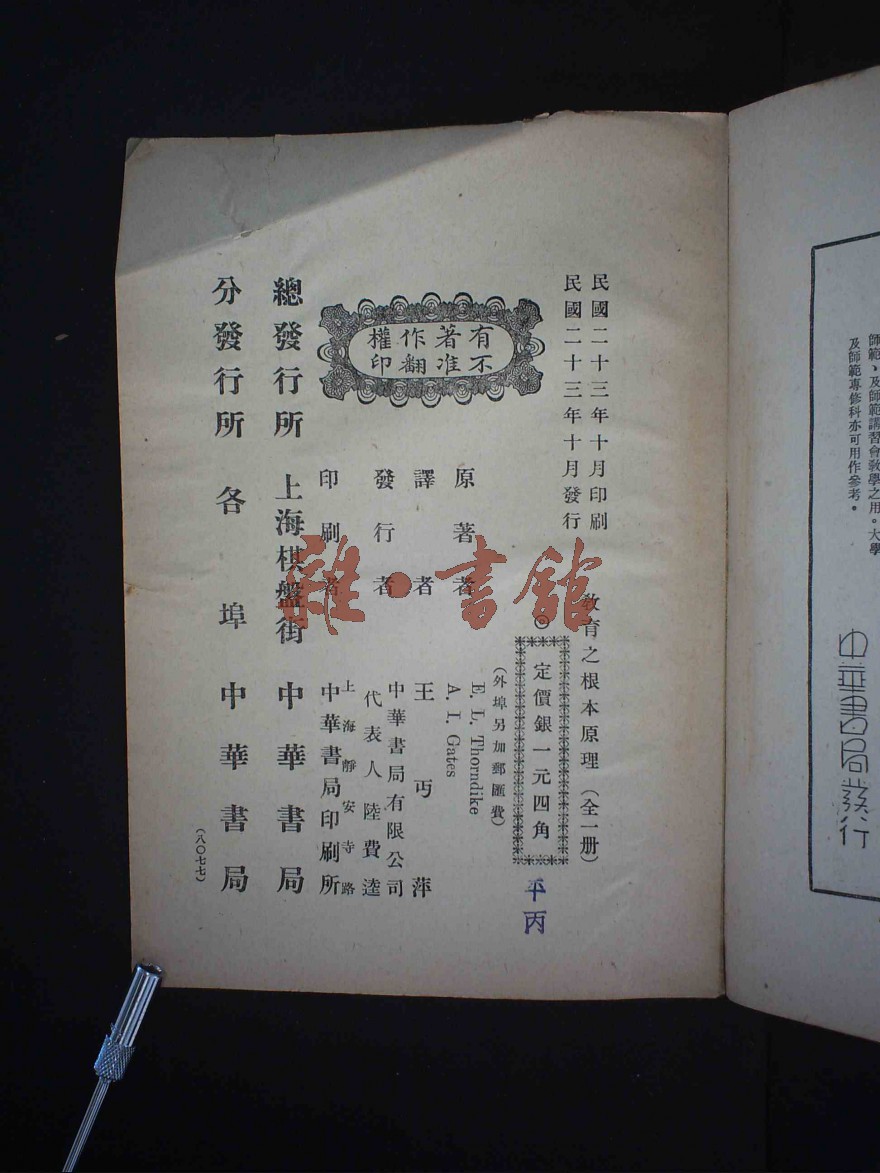 師範、及師範講習會教學之用。大學
及師範專修科亦可用作參考。
中華書局發行
民國二十三年十月印刷
民國二十三年十月發行
教育之根本原理（全一册）
◎定價銀一元四角
平丙
（外埠另加郵匯費）
有著作權
不准翻印
原著者
E. L. Thorndike
A. I. Gates
譯者 王丏萍
發行者 中華書局有限公司
代表人陸費逵
印刷者 上海靜安寺路
中華書局印刷所
總發行所 上海棋盤街 中華書局
分發行所 各埠 中華書局
（八〇七七）
雜·書館